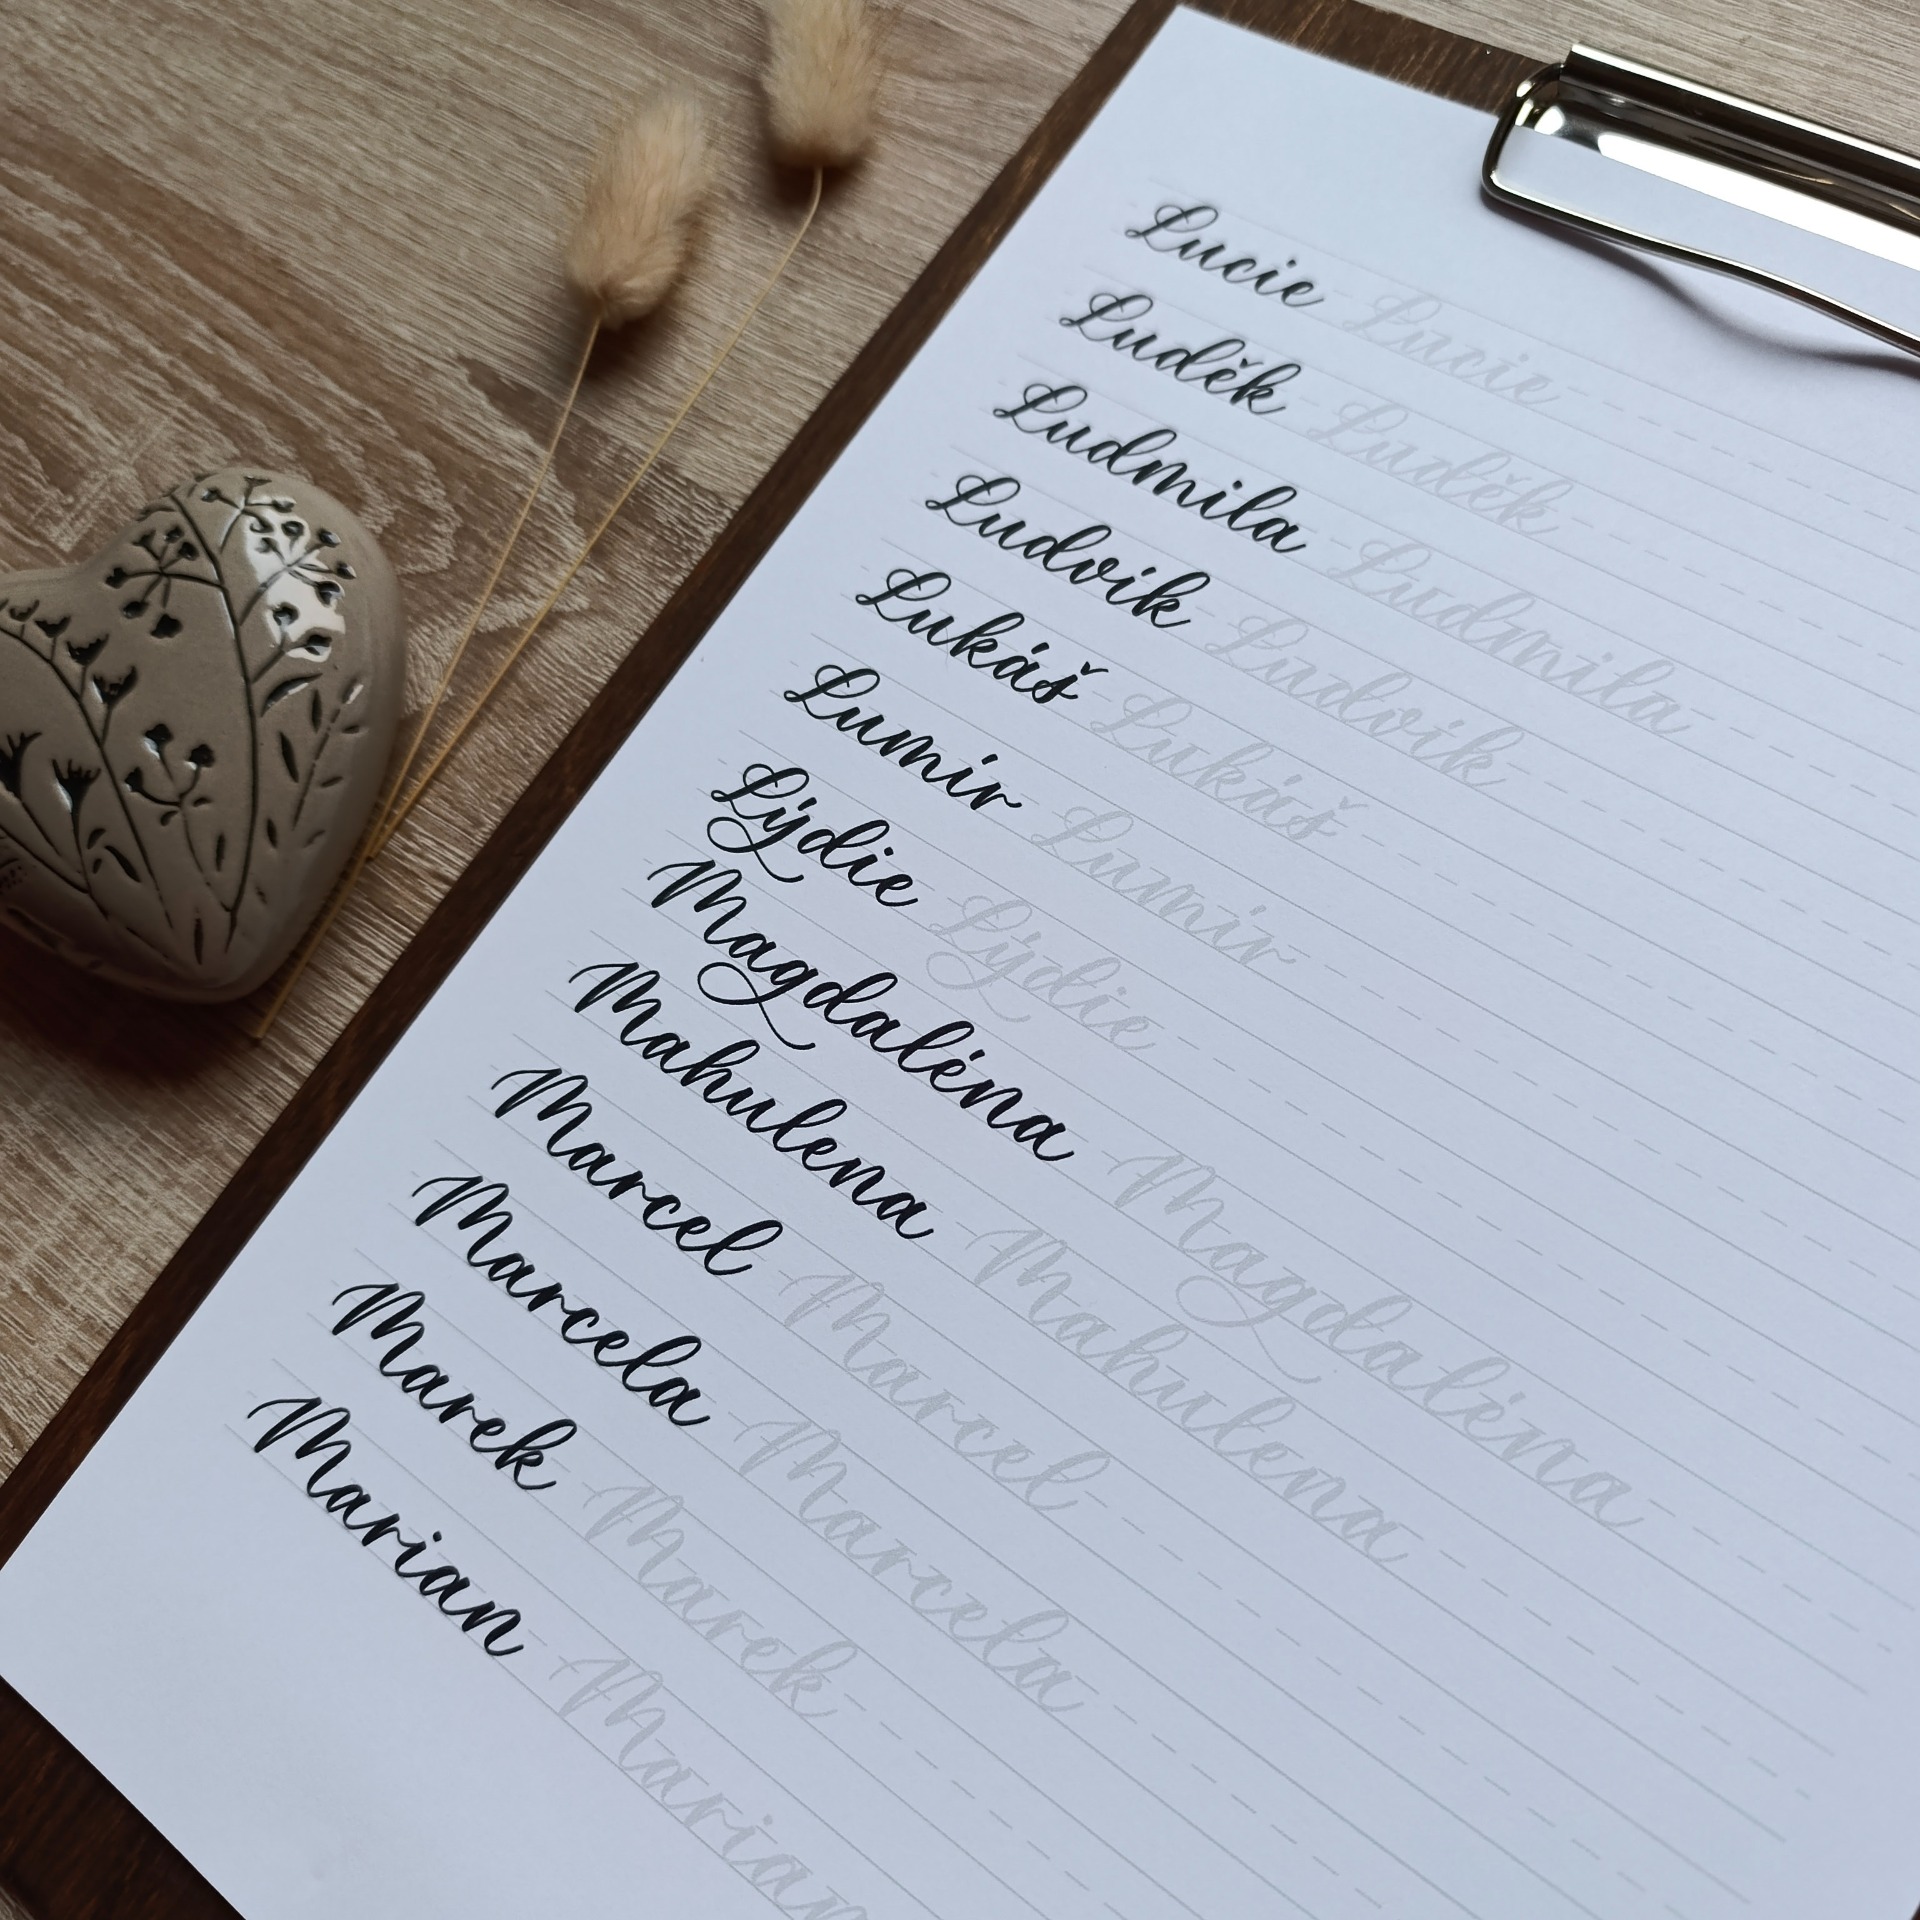 Lucie Lucie
Luděk Luděk
Ludmila Ludmila
Ludvík Ludvík
Lukáš Lukáš
Lumír Lumír
Lýdie Lýdie
Magdaléna Magdaléna
Mahulena Mahulena
Marcel Marcel
Marcela Marcela
Marek Marek
Marian Marian